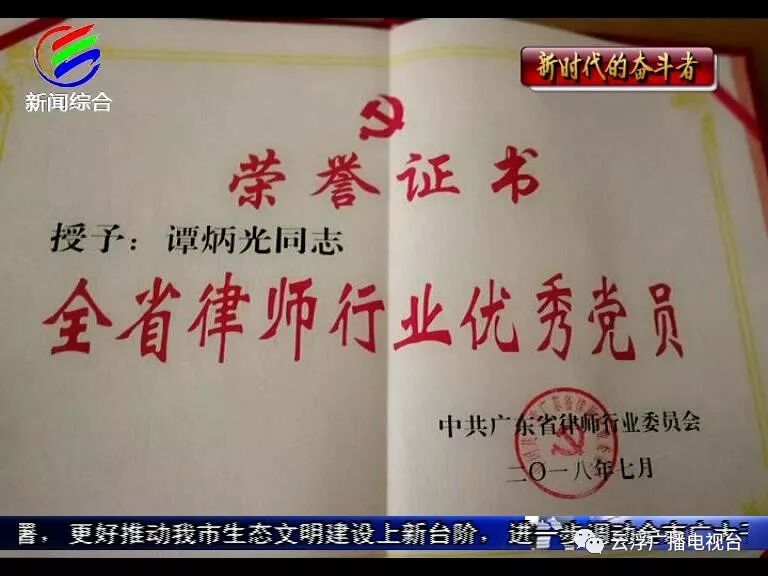 新闻综合
新时代的奋斗者
荣誉证书
授予：谭炳光同志
全省律师行业优秀党员
中共广东省律师行业委员会
二〇一八年七月
署，更好推动我市生态文明建设上新台阶，进一步调动全市广大干
云浮广播电视台